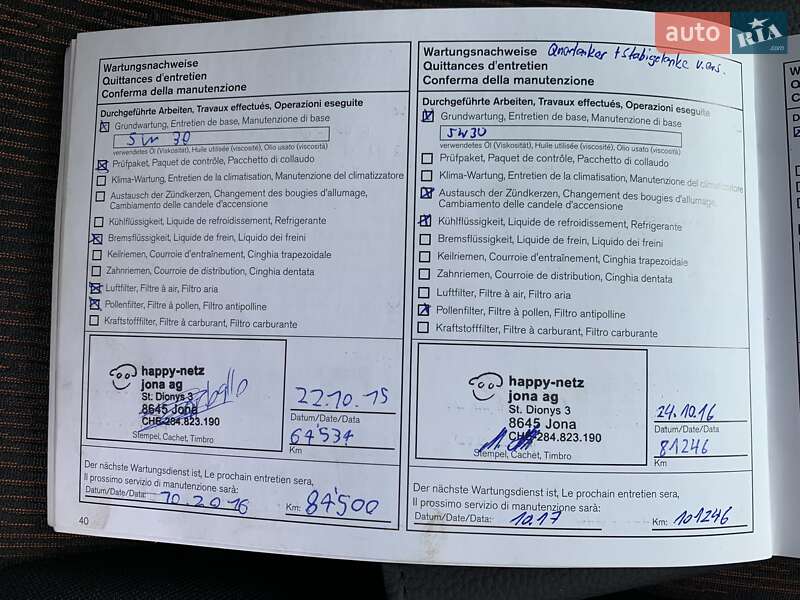 auto RIA.com
Wartungsnachweise
Quittances d'entretien
Conferma della manutenzione
Durchgeführte Arbeiten, Travaux effectués, Operazioni eseguite
Grundwartung, Entretien de base, Manutenzione di base
5W30
verwendetes Öl (Viskosität), Huile utilisée (viscosité), Olio usato (viscosità)
Prüfpaket, Paquet de contrôle, Pacchetto di collaudo
Klima-Wartung, Entretien de la climatisation, Manutenzione del climatizzatore
Austausch der Zündkerzen, Changement des bougies d'allumage,
Cambiamento delle candele d'accensione
Kühlflüssigkeit, Liquide de refroidissement, Refrigerante
Bremsflüssigkeit, Liquide de frein, Liquido dei freini
Keilriemen, Courroie d'entraînement, Cinghia trapezoidale
Zahnriemen, Courroie de distribution, Cinghia dentata
Luftfilter, Filtre à air, Filtro aria
Pollenfilter, Filtre à pollen, Filtro antipolline
Kraftstofffilter, Filtre à carburant, Filtro carburante
happy-netz
jona ag
St. Dionys 3
8645 Jona
CHE-284.823.190
Stempel, Cachet, Timbro
22.10.15
Datum/Date/Data
64'534
Km
Der nächste Wartungsdienst ist, Le prochain entretien sera,
Il prossimo servizio di manutenzione sarà:
Datum/Date/Data: 10.2016 Km: 84'500
40
Wartungsnachweise Querlenker + Stabigelenke v.ers.
Quittances d'entretien
Conferma della manutenzione
Durchgeführte Arbeiten, Travaux effectués, Operazioni eseguite
Grundwartung, Entretien de base, Manutenzione di base
5W30
verwendetes Öl (Viskosität), Huile utilisée (viscosité), Olio usato (viscosità)
Prüfpaket, Paquet de contrôle, Pacchetto di collaudo
Klima-Wartung, Entretien de la climatisation, Manutenzione del climatizzatore
Austausch der Zündkerzen, Changement des bougies d'allumage,
Cambiamento delle candele d'accensione
Kühlflüssigkeit, Liquide de refroidissement, Refrigerante
Bremsflüssigkeit, Liquide de frein, Liquido dei freini
Keilriemen, Courroie d'entraînement, Cinghia trapezoidale
Zahnriemen, Courroie de distribution, Cinghia dentata
Luftfilter, Filtre à air, Filtro aria
Pollenfilter, Filtre à pollen, Filtro antipolline
Kraftstofffilter, Filtre à carburant, Filtro carburante
happy-netz
jona ag
St. Dionys 3
8645 Jona
CHE-284.823.190
Stempel, Cachet, Timbro
24.10.16
Datum/Date/Data
81246
Km
Der nächste Wartungsdienst ist, Le prochain entretien sera,
Il prossimo servizio di manutenzione sarà:
Datum/Date/Data: 10.17 Km: 101246